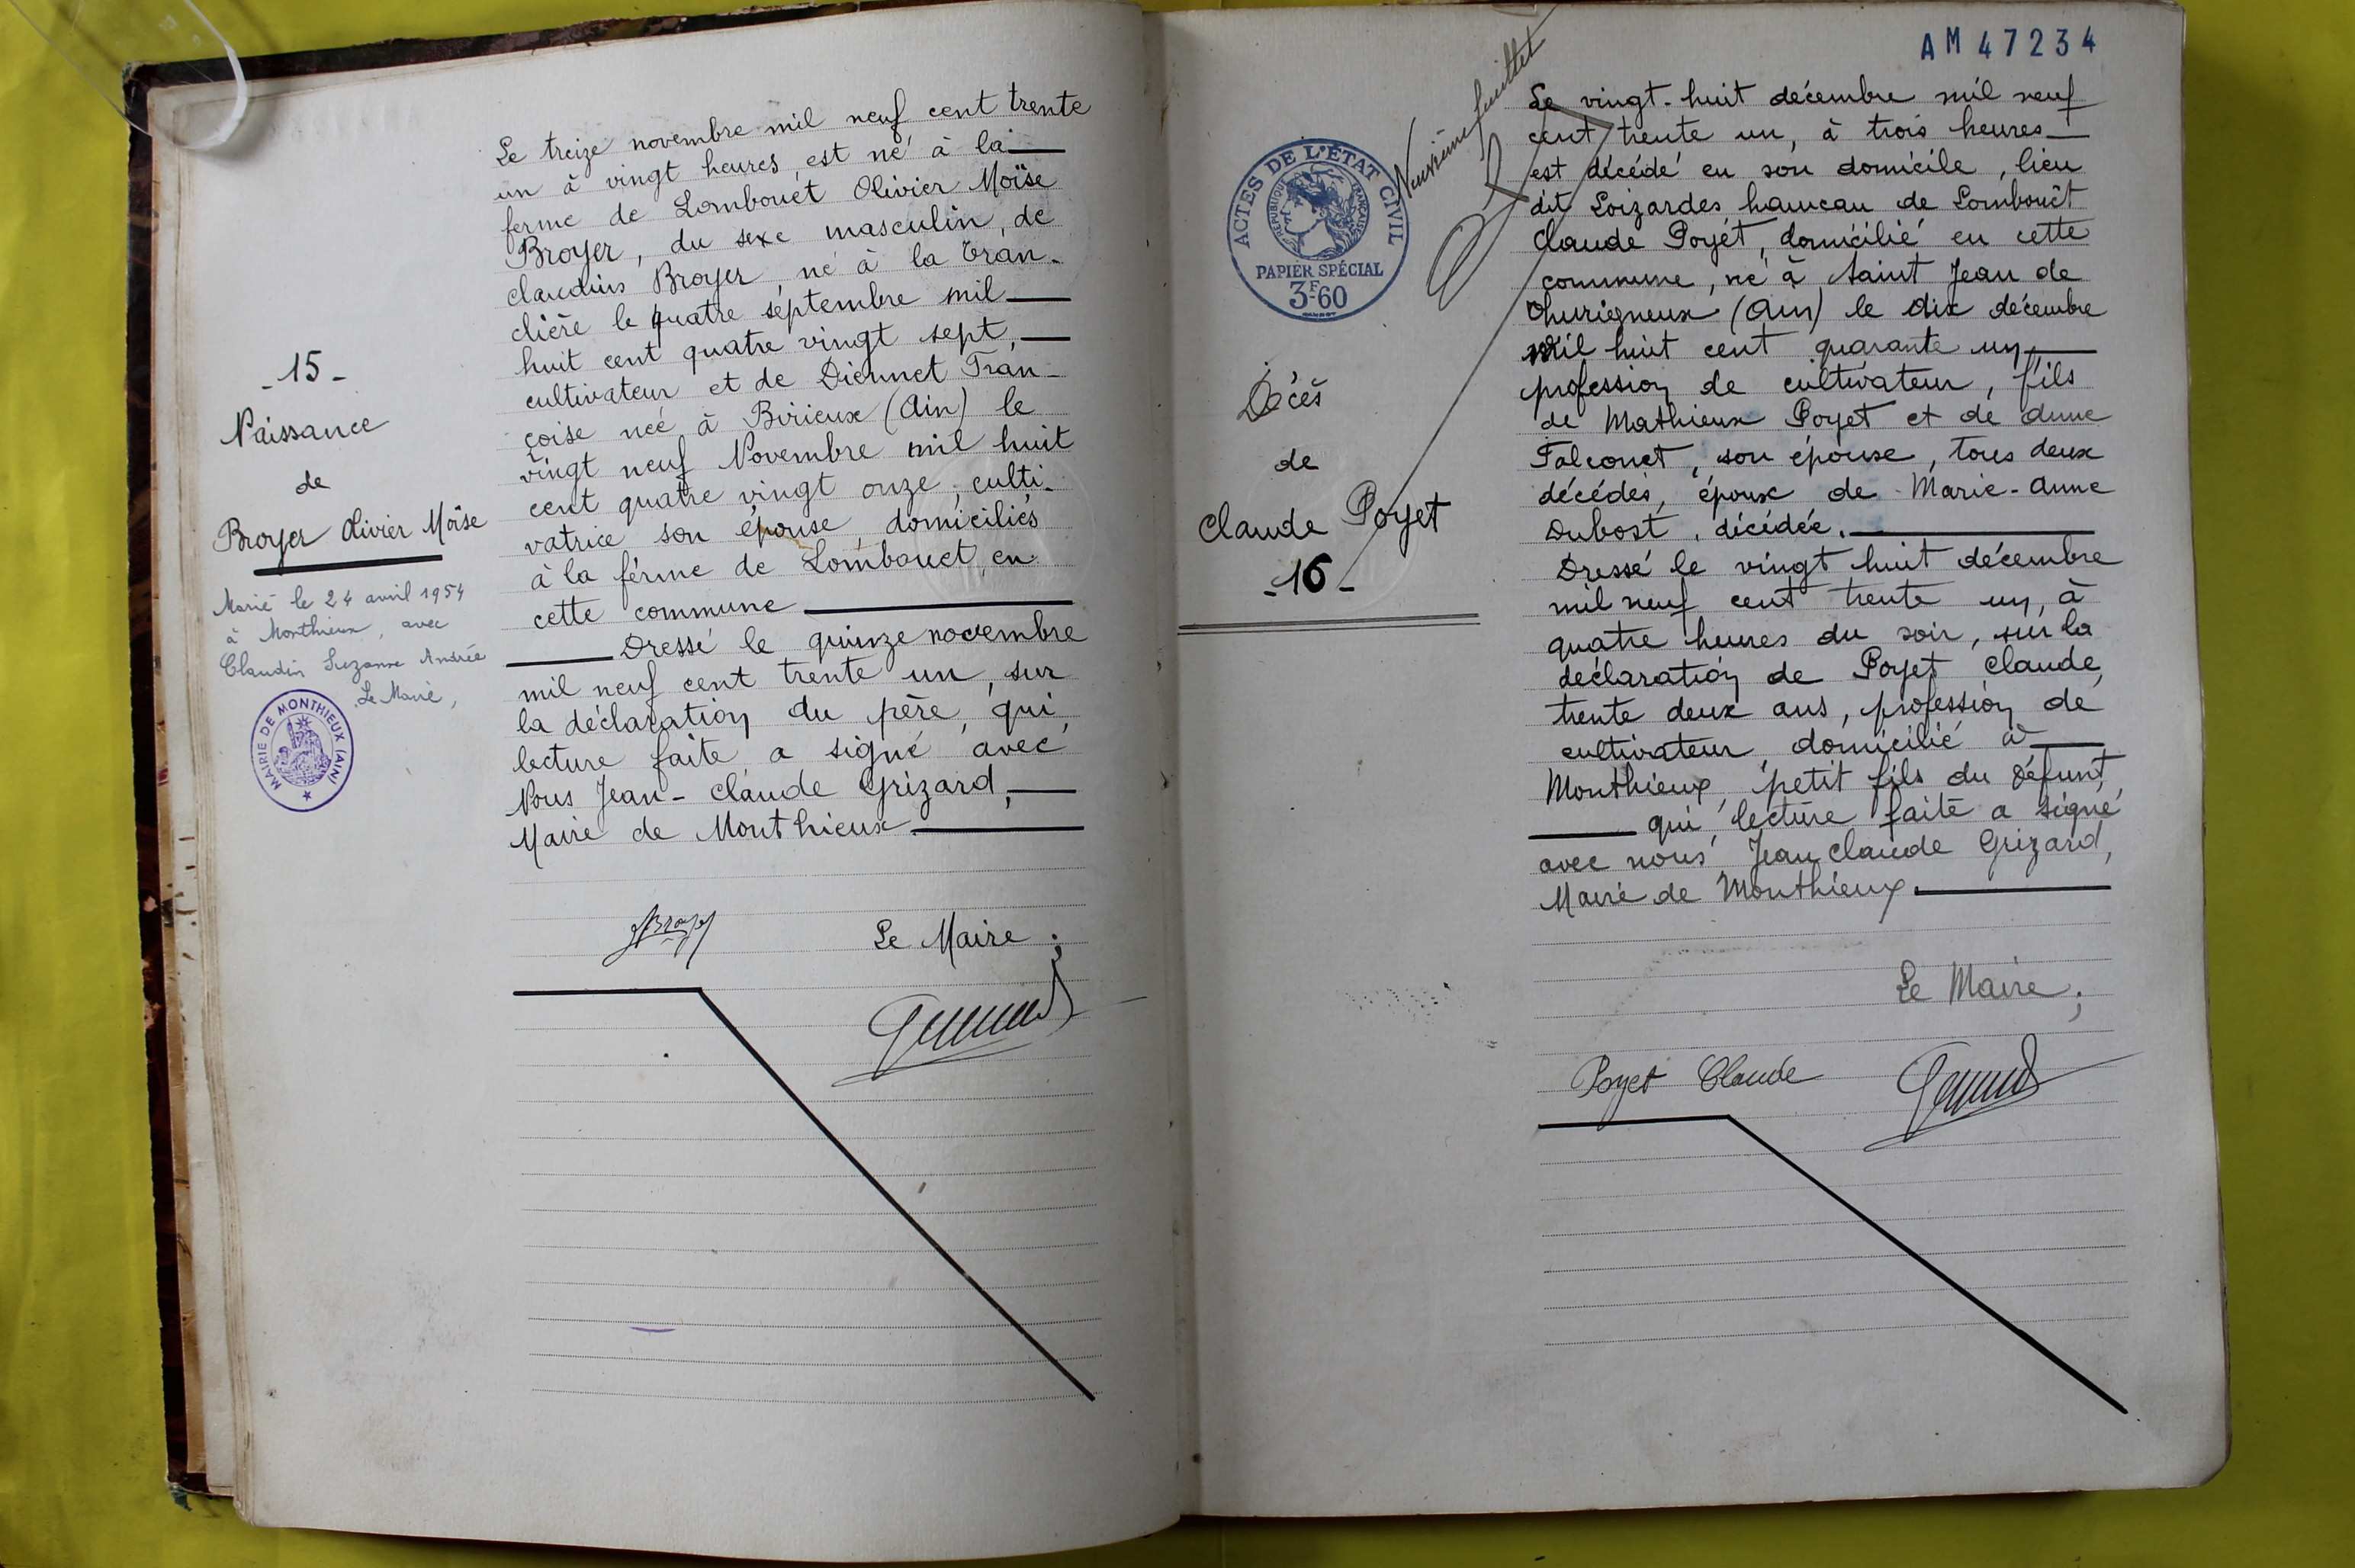 -15-
Naissance
de
Broyer Olivier Moïse
Marié le 24 avril 1954
à Monthieux, avec
Claudin Suzanne Andrée
Le Maire,
MAIRIE DE MONTHIEUX (AIN)
Le treize novembre mil neuf cent trente
un à vingt heures, est né à la
ferme de Lombouet Olivier Moïse
Broyer, du sexe masculin, de
Claudius Broyer, né à la Tran-
clière le quatre septembre mil
huit cent quatre vingt sept,
cultivateur et de Diennet Fran-
çoise née à Birieux (Ain) le
vingt neuf Novembre mil huit
cent quatre vingt onze, culti-
vatrice son épouse, domiciliés
à la ferme de Lombouet, en
cette commune
Dressé le quinze novembre
mil neuf cent trente un, sur
la déclaration du père, qui,
lecture faite a signé avec
Nous Jean-Claude Grizard,
Maire de Monthieux.
Broyer
Le Maire;
AM 47234
Neuvième feuillet
ACTES DE L'ÉTAT CIVIL
RÉPUBLIQUE FRANÇAISE
PAPIER SPÉCIAL
3F-60
Décès
de
Claude Poyet
-16-
Le vingt-huit décembre mil neuf
cent trente un, à trois heures
est décédé en son domicile, lieu
dit Loizardes, hameau de Lombouêt
Claude Poyet, domicilié en cette
commune, né à Saint Jean de
Thurigneux (Ain) le dix décembre
mil huit cent quarante un,
profession de cultivateur, fils
de Mathieux Poyet et de Anne
Falconet, son épouse, tous deux
décédés, époux de Marie-Anne
Dubost, décédée.
Dressé le vingt huit décembre
mil neuf cent trente un, à
quatre heures du soir, sur la
déclaration de Poyet Claude,
trente deux ans, profession de
cultivateur, domicilié à
Monthieux, petit fils du défunt,
qui, lecture faite a signé
avec nous Jean Claude Grizard,
Maire de Monthieux.
Le Maire;
Poyet Claude